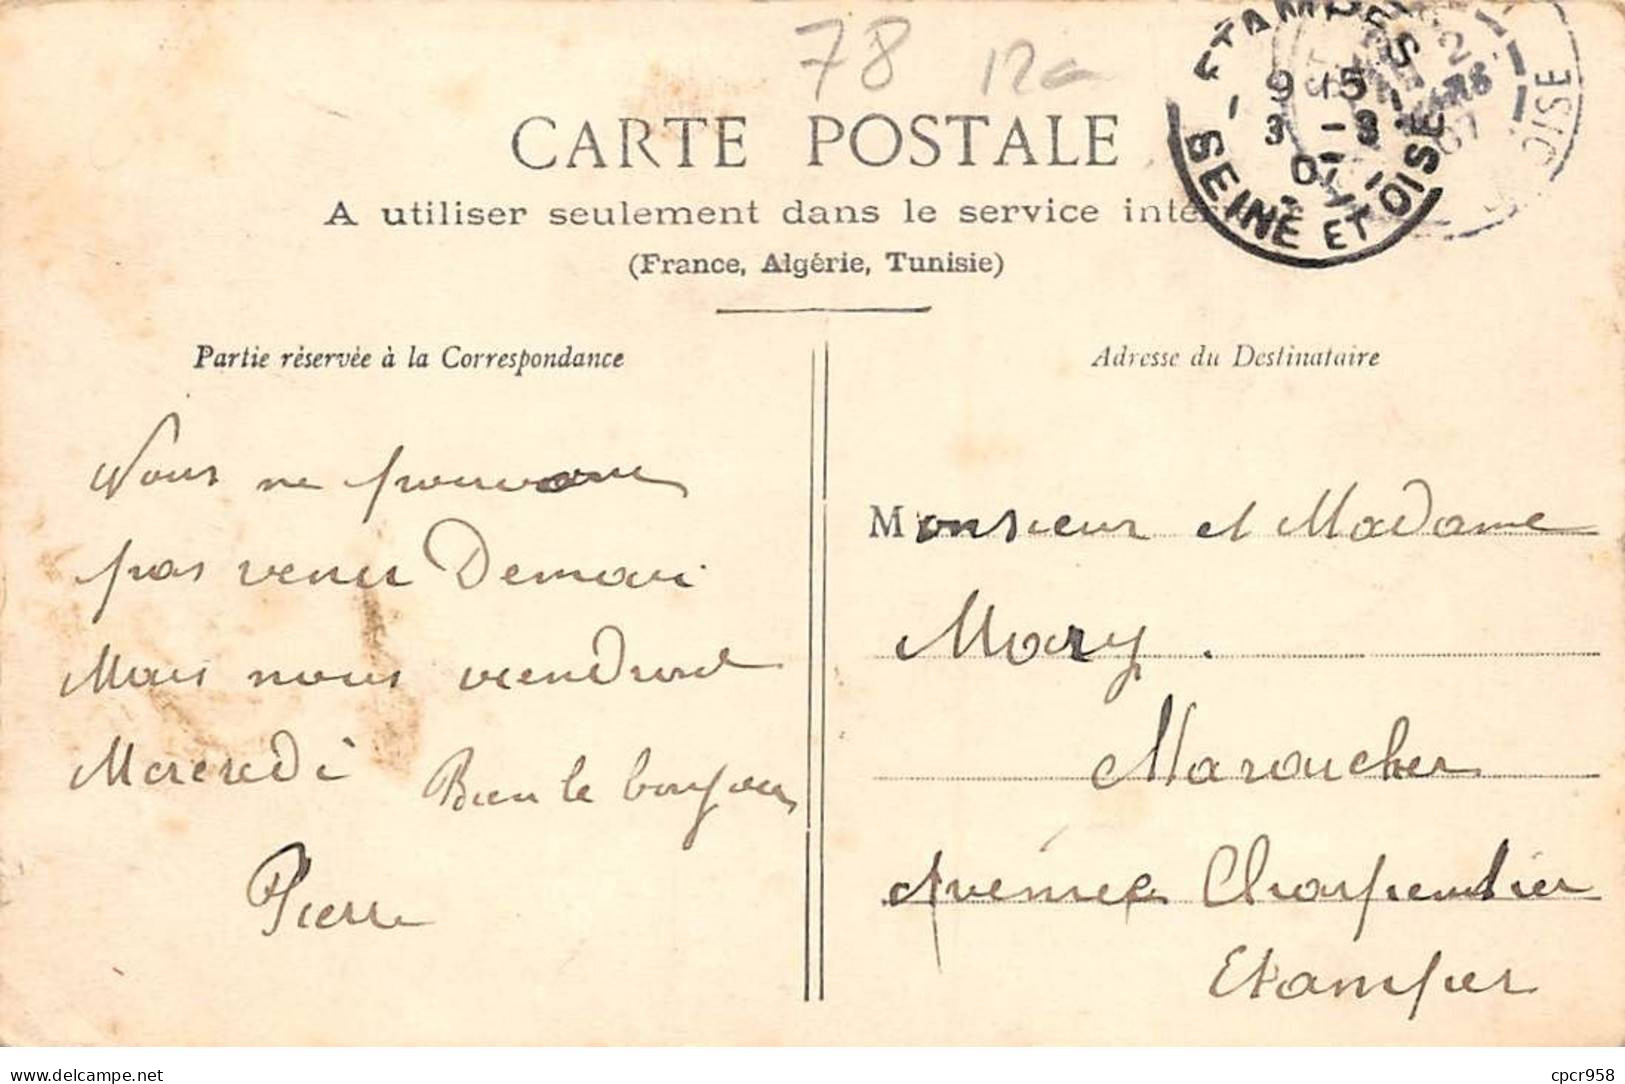 78 12e
CARTE POSTALE
A utiliser seulement dans le service inté
(France, Algérie, Tunisie)
ETAMPES
9 15
3 - 3
07
SEINE ET OISE
2
MARS
07
OISE
Partie réservée à la Correspondance
Nous ne pouvons
pas venir Demain
Mais nous viendront
Mercredi
Bien le bonjour
Pierre
Adresse du Destinataire
Monsieur et Madame
Mary.
Maraicher
Avenue Charpentier
Etampes
cpcr958